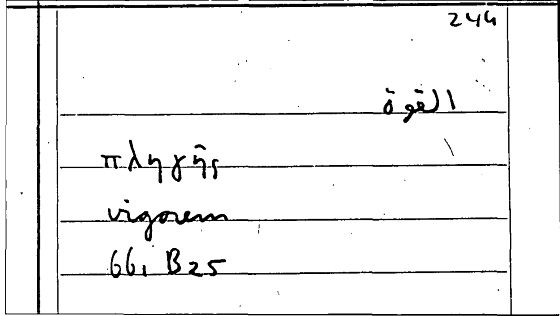 244
القوة
πληγῆς
vigorem
66, B25